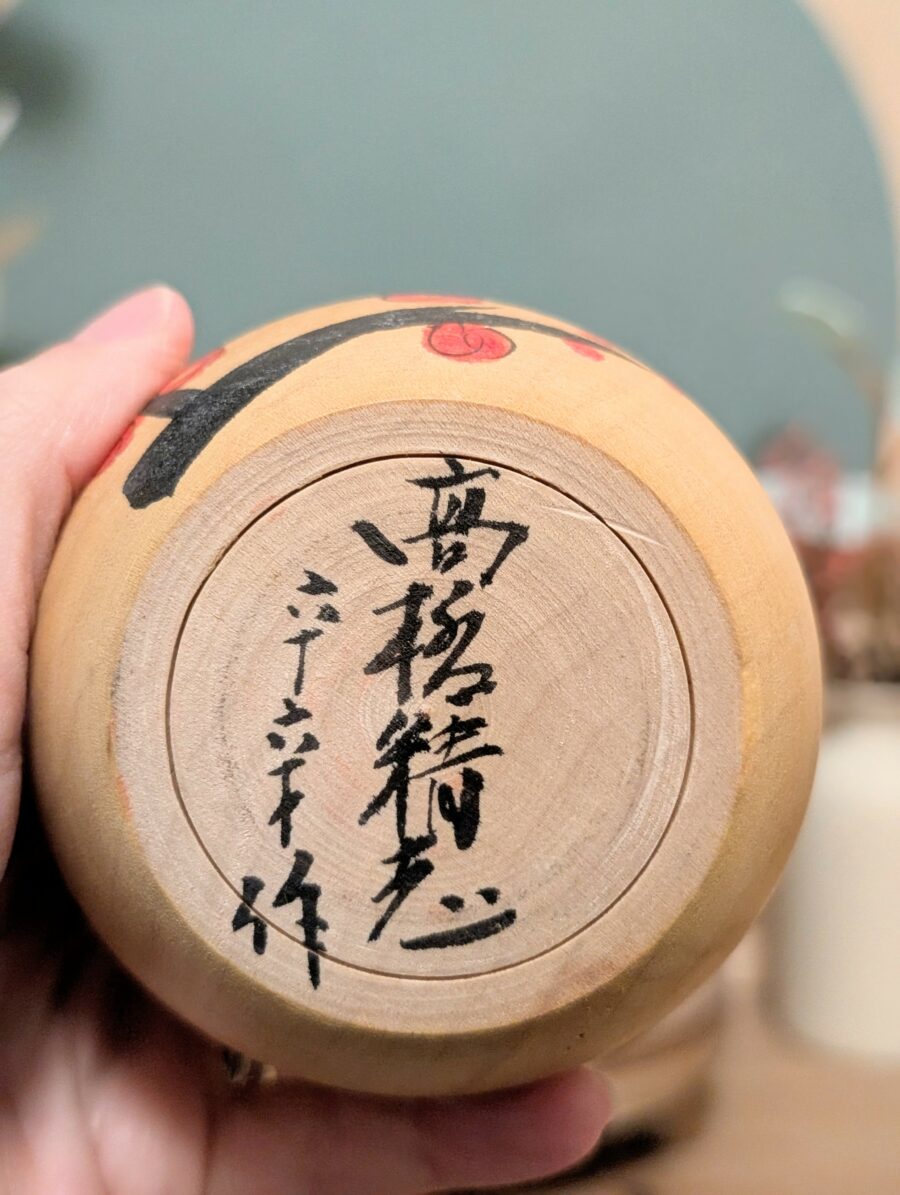 高橋精志
六十六才作